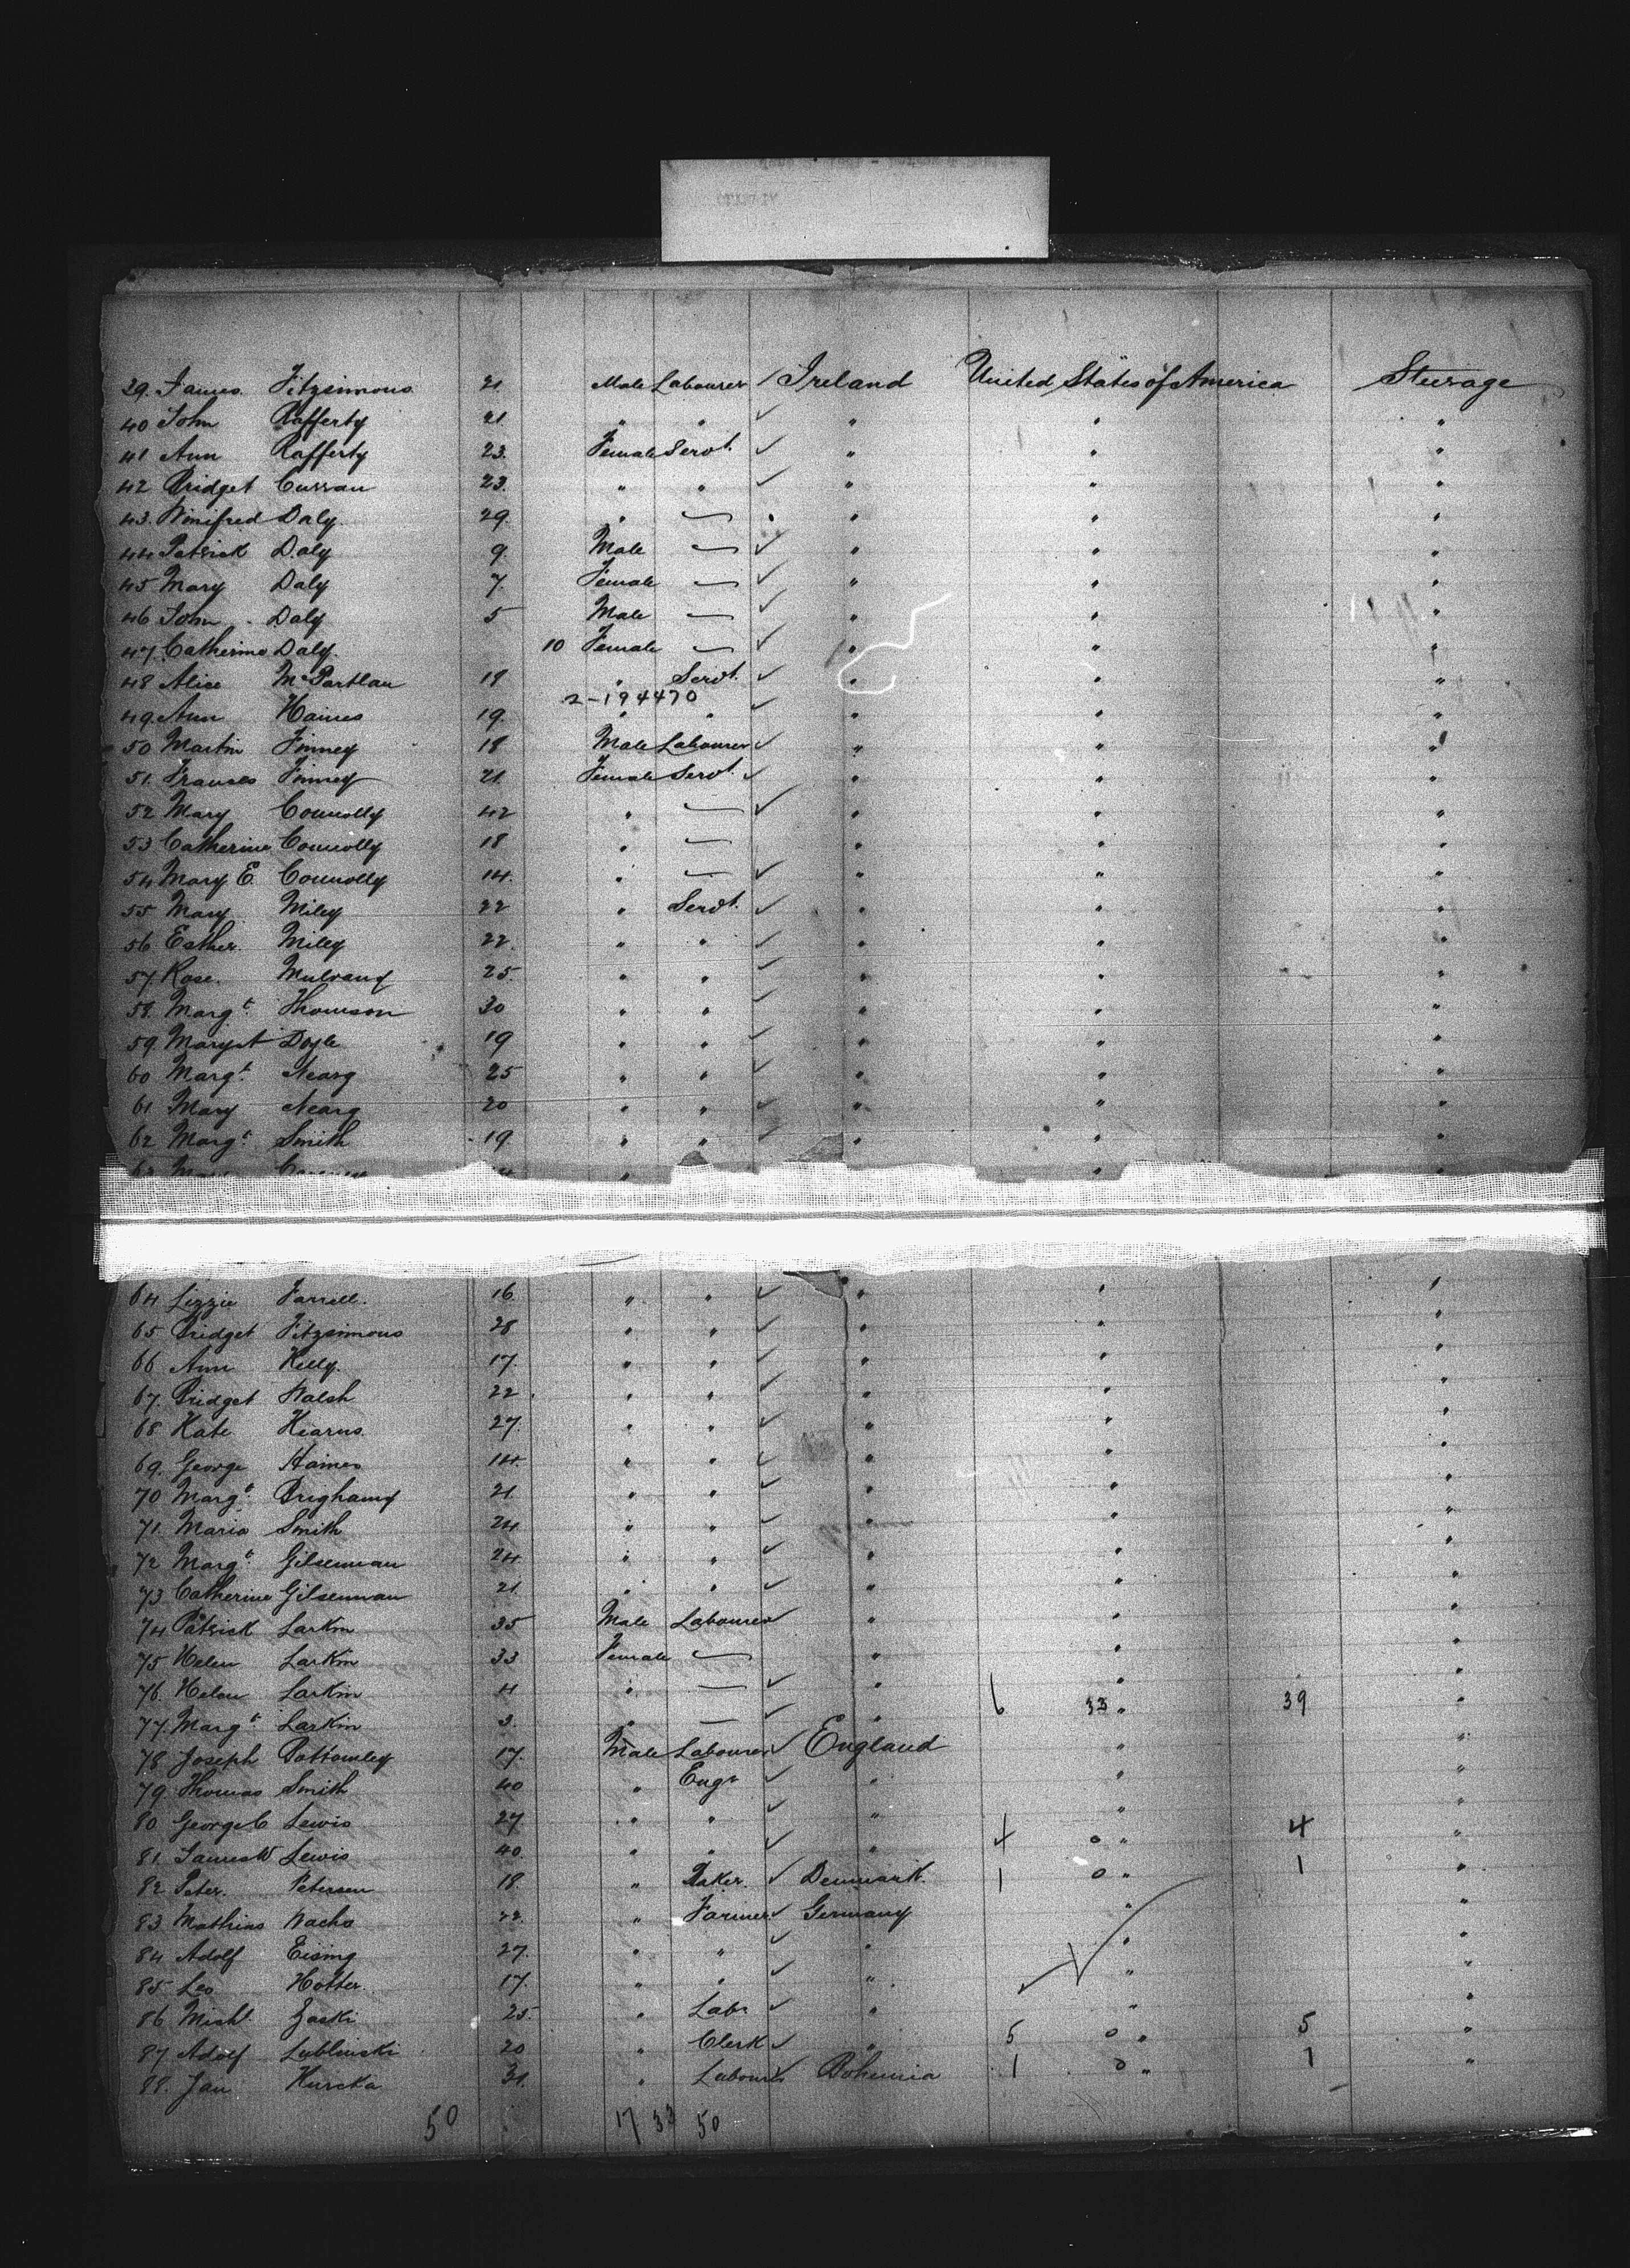 39. James Fitzsimons 21. Male Labourer ✓ Ireland United States of America Steerage
40 John Rafferty 21 " " ✓ " " "
41 Ann Rafferty 23. Female Servt. ✓ " " "
42 Bridget Curran 23. " " ✓ " " "
43. Winifred Daly. 29. " — " " "
44 Patrick Daly 9. Male — ✓ " " "
45 Mary Daly 7. Female — ✓ " " "
46 John Daly 5 Male — ✓ " " "
47. Catherine Daly. 10 Female — ✓ " " "
48 Alice McPartlan 19 " Servt. ✓ " " "
2-194470
49. Ann Haines 19. " " ✓ " " "
50 Martin Finney 18 Male Labourer ✓ " " "
51. Frances Finney 21. Female Servt. ✓ " " "
52 Mary Connolly 42 " — ✓ " " "
53 Catherine Connolly 18 " — " " "
54 Mary E. Connolly 14. " — ✓ " " "
55 Mary Miley 22 " Servt. ✓ " " "
56 Esther Miley 22. " " ✓ " " "
57. Rose. 25. " " ✓ " " "
58. Margt. Thomson 30 " " ✓ " " "
59. Mary A Doyle 19 " " ✓ " " "
60 Margt. 25 " " ✓ " " "
61 Mary 20 " " ✓ " " "
62 Margt. Smith 19. " " ✓ " " "
63 Mary " "
64 Lizzie Farrell. 16. " " ✓ " " "
65 Bridget Fitzsimons 28 " " ✓ " " "
66 Ann Kelly. 17. " " ✓ " " "
67. Bridget Walsh 22. " " ✓ " " "
68 Kate Kearns. 27. " " ✓ " " "
69. George Haines 14. " " ✓ " " "
70 Margt. 21. " " ✓ " " "
71. Maria Smith 24 " " ✓ " " "
72 Margt. Gilsennan 24 " " ✓ " " "
73 Catherine Gilsennan 21. " " ✓ " " "
74 Patrick Larkin 35 Male Labourer ✓ " " "
75 Helen Larkin 33 Female — " " "
76. Helen Larkin 4 " — ✓ " 6 33 " 39 "
77. Margt. Larkin 3. " — ✓ " " "
78. Joseph Bottomley 17. Male Labourer ✓ England " "
79. Thomas Smith 40 " Engr ✓ " " "
80 George C Lewis 27. " " ✓ " " "
81. James W Lewis 40. " " ✓ " 4 0 " 4 "
82 Peter. Petersen 18. " Baker. ✓ Denmark. 1 0 " 1 "
83. Mathias Wachs 22. " Farmer ✓ Germany " "
84 Adolf Eising 27. " " ✓ " " "
85 Leo Hotter. 17. " " ✓ " " "
86 Michl. Zaski 25. " Labr ✓ " " "
87 Adolf Lublinski 20 " Clerk ✓ " 5 0 " 5 "
88. Jan Kurcka 31. " Labourer ✓ Bohemia 1 0 " 1 "
50 17 33 50